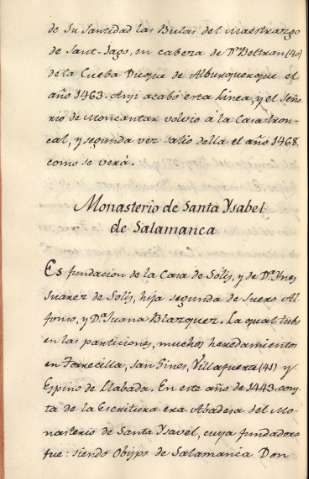 de Su Santidad las Bulas del maestrazgo
de Sant-Iago, en cabeza de Dn Beltran (40)
de la Cueba Duque de Alburquerque el
año 1463. Anji acabó esta linea, y el Seño
rio de Moncantar volvió à la Casa tron-
cal, y segunda vez salio della el año 1468,
como se verá.
Monasterio de Santa Ysabel
de Salamanca
Es fundacion de la Casa de Solís, y de Dª Ynes
Suarez de Solís, hija segunda de Suero Al
fonso, y Dª Juana Blazquez. La qual tubo
en las particiones, muchos heredamientos
en Forrecilla, San Gines, Villafuerte (41) y
Espino de Llabada. En este año de 1443 cons
ta de la Escritura era Abadesa del Mo-
nasterio de Santa Ysavel, cuya fundadora
fue: siendo Obispo de Salamanca Don